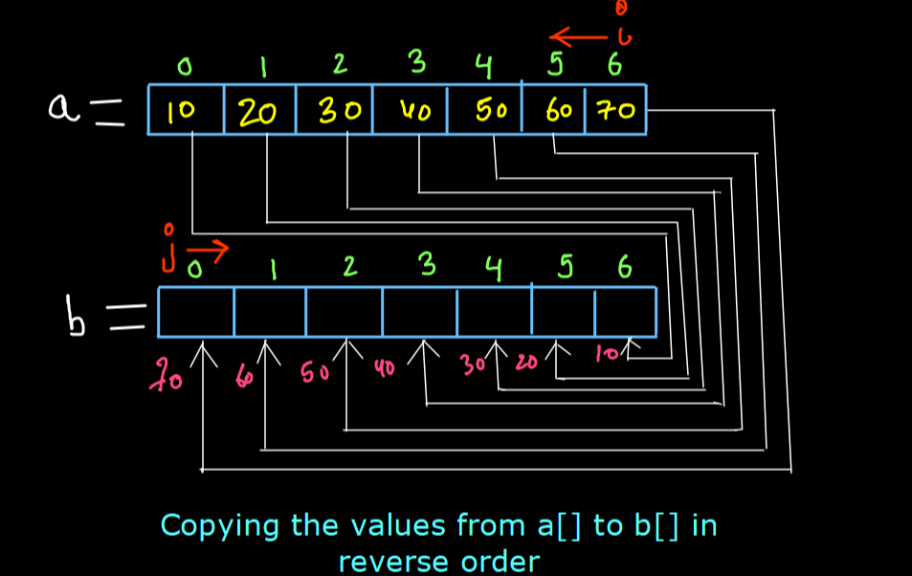 i
0 1 2 3 4 5 6
a = 10 20 30 40 50 60 70
j
0 1 2 3 4 5 6
b =
70 60 50 40 30 20 10
Copying the values from a[] to b[] in
reverse order